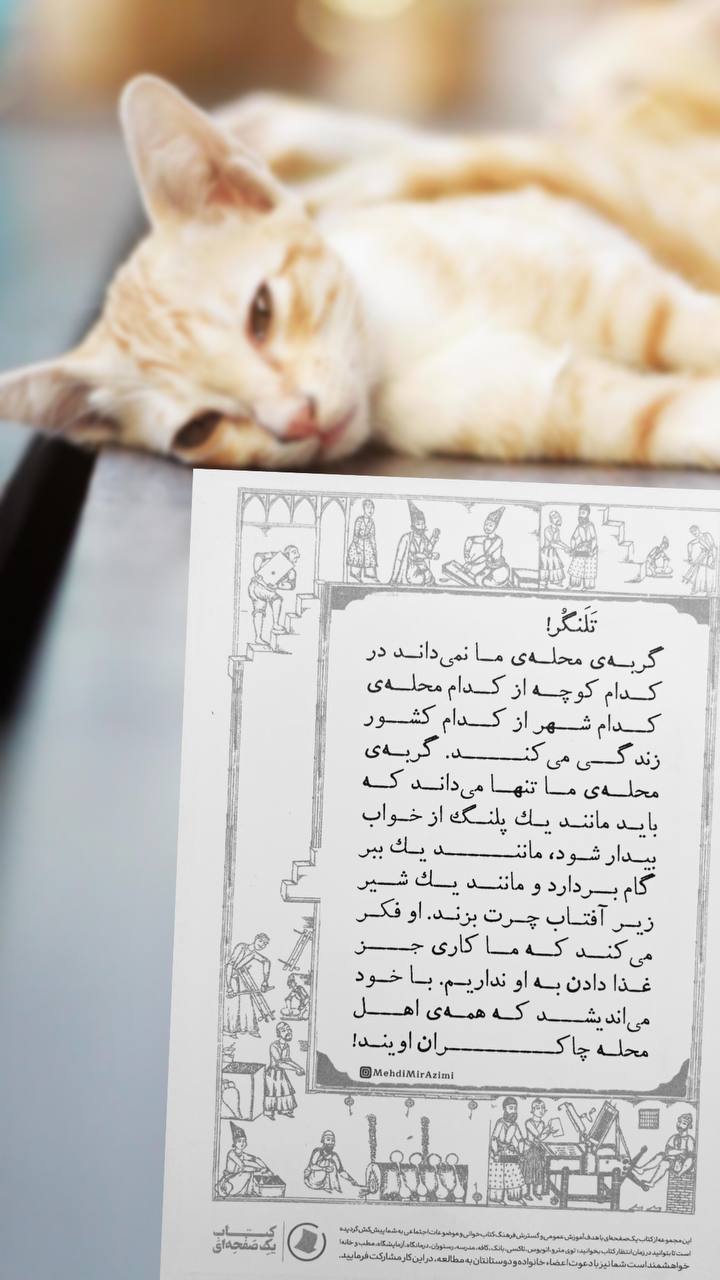 تَلَنگُر!
گربه‌ی محله‌ی ما نمی‌داند در
کدام کوچه از کدام محله‌ی
کدام شهر از کدام کشور
زندگی می‌کند. گربه‌ی
محله‌ی ما تنها می‌داند که
باید مانند یك پلنگ از خواب
بیدار شود، مانند یك ببر
گام بردارد و مانند یك شیر
زیر آفتاب چرت بزند. او فکر
می‌کند که ما کاری جز
غذا دادن به او نداریم. با خود
می‌اندیشد که همه‌ی اهل
محله چاکران اویند!
MehdiMirAzimi
کتاب
یک صفحه‌ای
این مجموعه از کتاب یک صفحه‌ای با هدف آموزش عمومی و گسترش فرهنگ کتاب‌خوانی و موضوعات اجتماعی به شما پیش‌کش گردیده
است تا بتوانید در زمان انتظار کتاب بخوانید؛ توی مترو، اتوبوس، تاکسی، بانک، کافه، مدرسه، رستوران، درمانگاه، آزمایشگاه، مطب و خانه!
خواهشمند است شما نیز با دعوت اعضاء خانواده و دوستانتان به مطالعه، در این کار مشارکت فرمایید.